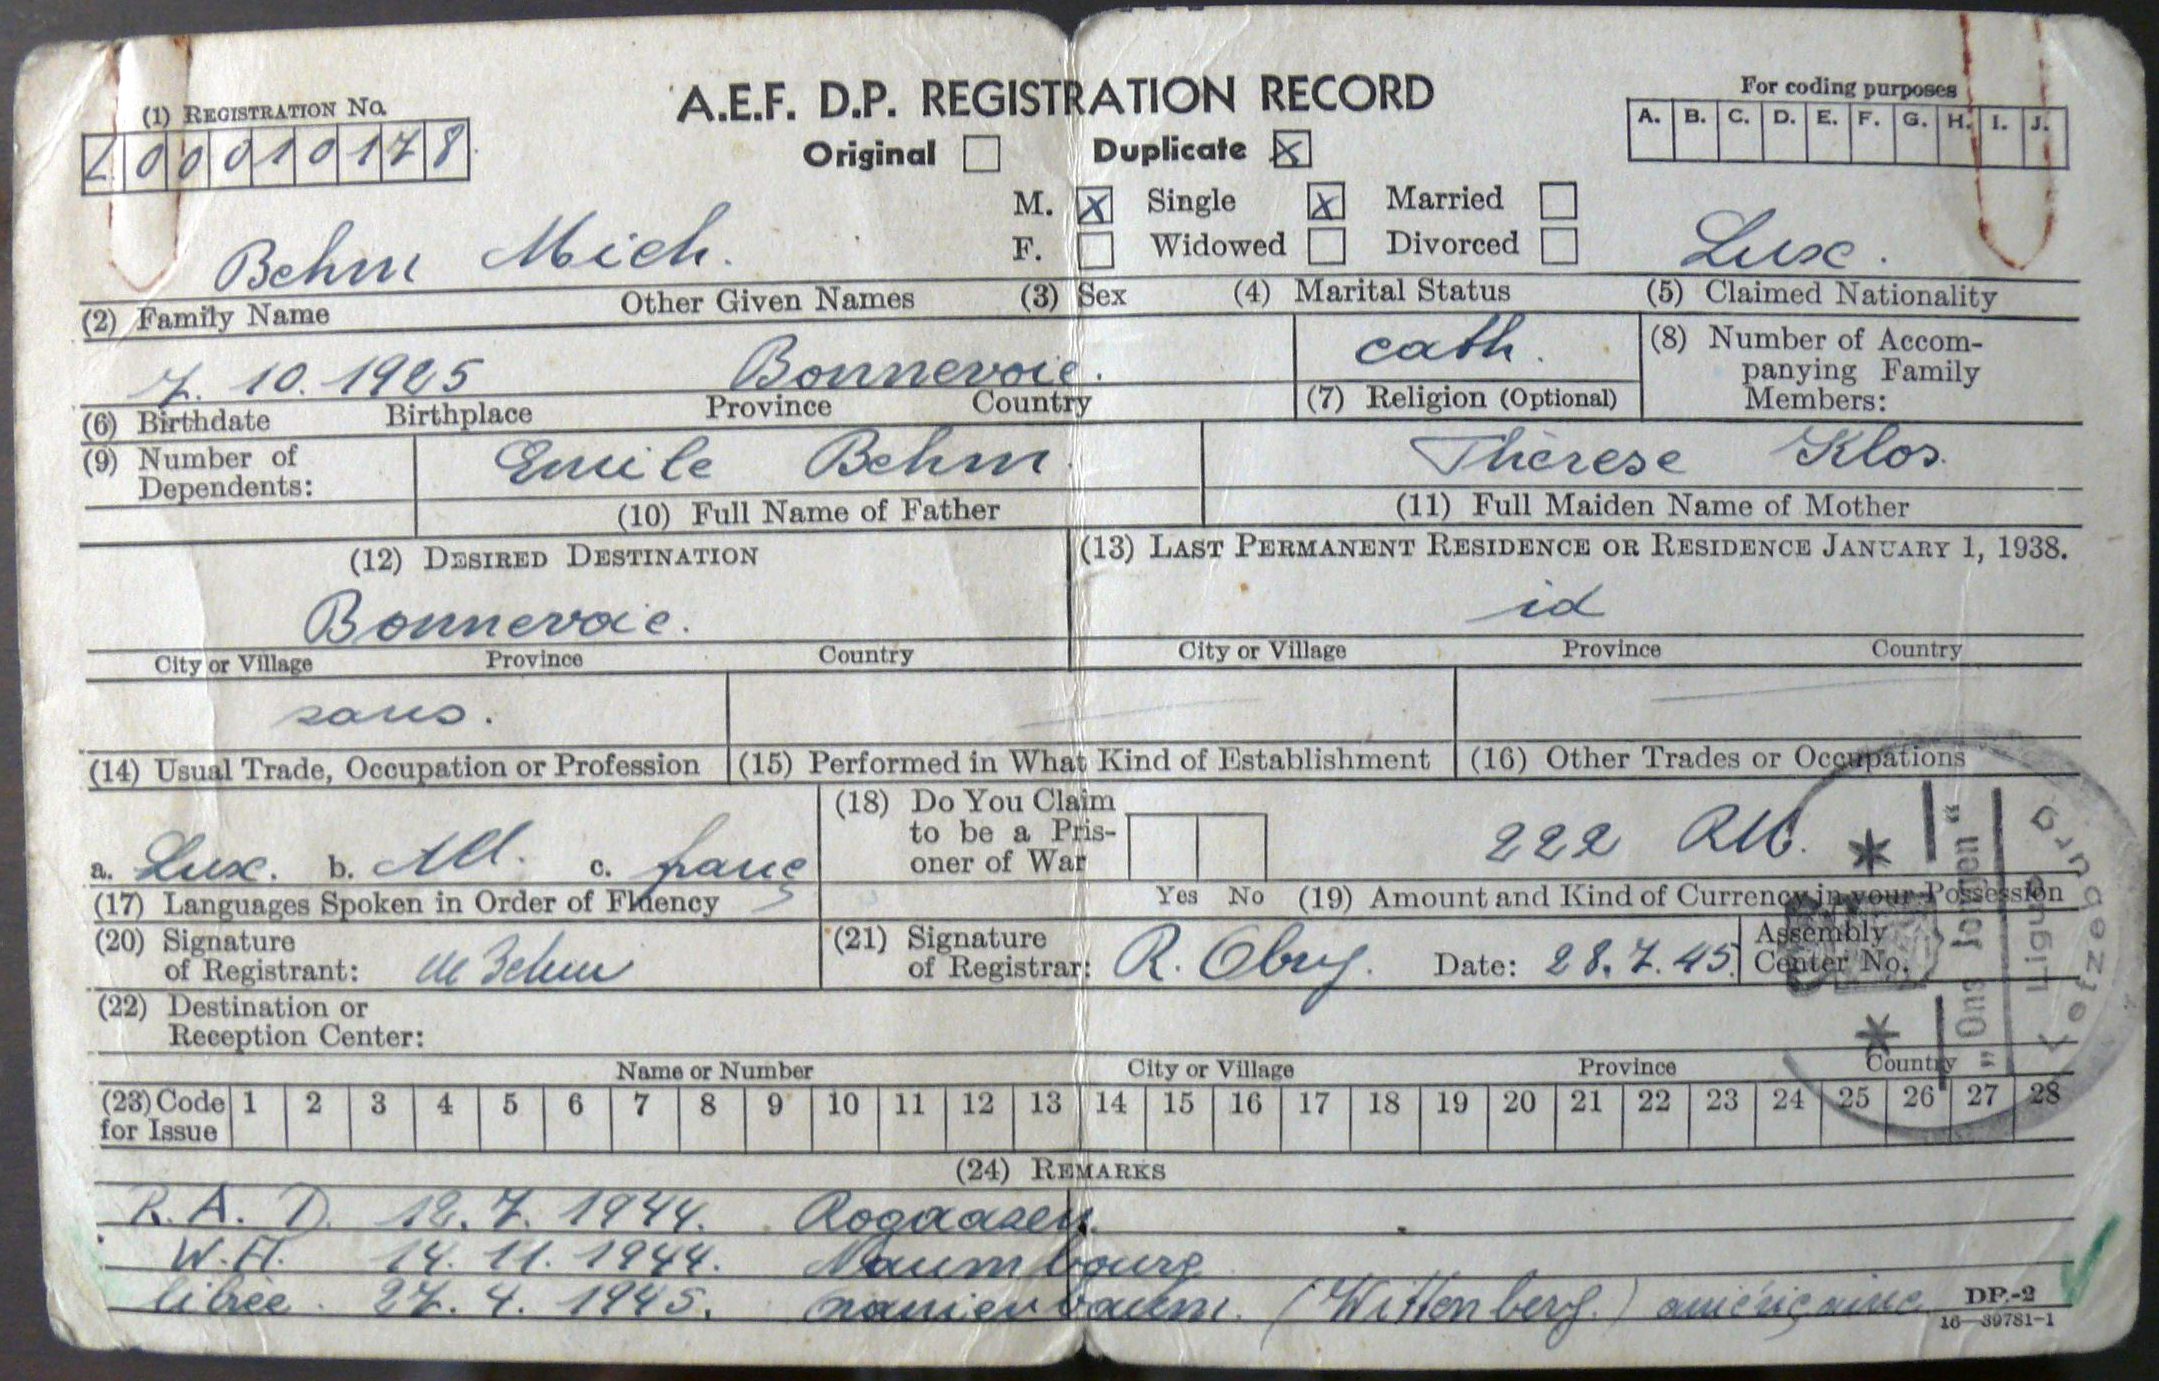 A.E.F. D.P. REGISTRATION RECORD
For coding purposes
(1) REGISTRATION No.
A. B. C. D. E. F. G. H. I. J.
L 0 0 0 1 0 1 7 8
Original Duplicate X
M. X Single X Married
F. Widowed Divorced
Behm Mich. Lux.
(2) Family Name Other Given Names (3) Sex (4) Marital Status (5) Claimed Nationality
7. 10. 1925 Bonnevoie. cath.
(6) Birthdate Birthplace Province Country (7) Religion (Optional)
(8) Number of Accom-
panying Family
Members:
(9) Number of
Dependents:
Emile Behm. Thérese Klos.
(10) Full Name of Father (11) Full Maiden Name of Mother
(12) DESIRED DESTINATION (13) LAST PERMANENT RESIDENCE OR RESIDENCE JANUARY 1, 1938.
Bonnevoie. id
City or Village Province Country City or Village Province Country
sans.
(14) Usual Trade, Occupation or Profession (15) Performed in What Kind of Establishment (16) Other Trades or Occupations
a. Lux. b. All. c. franç
(17) Languages Spoken in Order of Fluency
(18) Do You Claim
to be a Pris-
oner of War
Yes No
222 RM.
(19) Amount and Kind of Currency in your Possession
(20) Signature
of Registrant: M Behm
(21) Signature
of Registrar: R. Obry. Date: 28.7.45.
Assembly
Center No.
(22) Destination or
Reception Center:
Name or Number City or Village Province Country
(23) Code
for Issue
1 2 3 4 5 6 7 8 9 10 11 12 13 14 15 16 17 18 19 20 21 22 23 24 25 26 27 28
(24) REMARKS
R. A. D. 12. 7. 1944. Rogaasen.
W.H. 14. 11. 1944. Naumbourg
libiée. 27. 4. 1945. (Wittenberg.) américaine
DP-2
16—39781-1
Letzeburg
Ligue
"Ons Jongen"